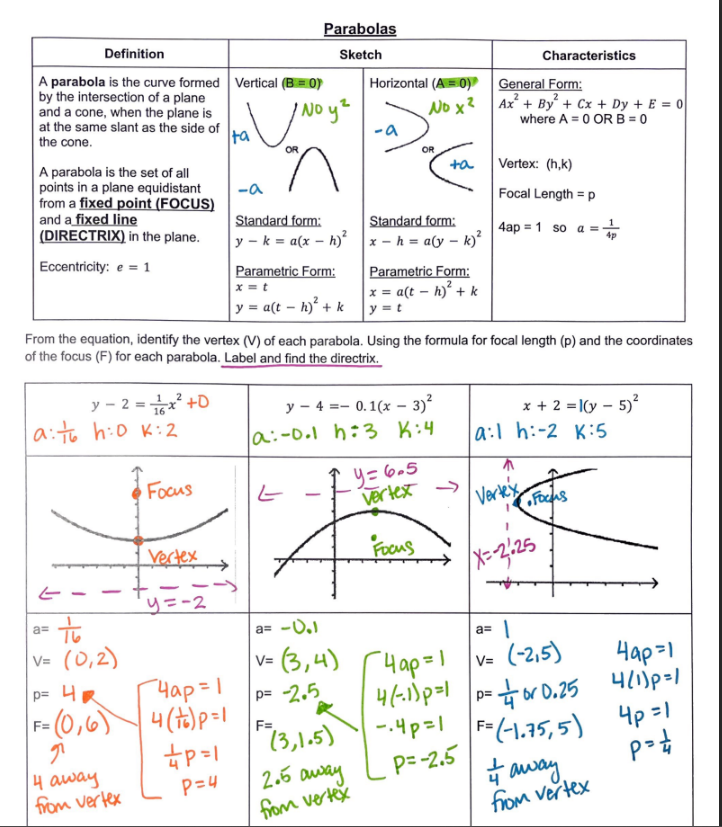 Parabolas
Definition
Sketch
Characteristics
A parabola is the curve formed
by the intersection of a plane
and a cone, when the plane is
at the same slant as the side of
the cone.
A parabola is the set of all
points in a plane equidistant
from a fixed point (FOCUS)
and a fixed line
(DIRECTRIX) in the plane.
Eccentricity: e = 1
Vertical (B = 0)
No y²
+a
OR
-a
Standard form:
y − k = a(x − h)²
Parametric Form:
x = t
y = a(t − h)² + k
Horizontal (A = 0)
No x²
-a
OR
+a
Standard form:
x − h = a(y − k)²
Parametric Form:
x = a(t − h)² + k
y = t
General Form:
Ax² + By² + Cx + Dy + E = 0
where A = 0 OR B = 0
Vertex: (h,k)
Focal Length = p
4ap = 1 so a = 1/4p
From the equation, identify the vertex (V) of each parabola. Using the formula for focal length (p) and the coordinates
of the focus (F) for each parabola. Label and find the directrix.
y − 2 = 1/16 x² +0
a: 1/16 h:0 K:2
Focus
Vertex
y=-2
a= 1/16
V= (0,2)
p= 4
F= (0,6)
4 away
from vertex
4ap=1
4(1/16)p=1
1/4 p=1
p=4
y − 4 =− 0.1(x − 3)²
a:-0.1 h:3 K:4
y=6.5
Vertex
Focus
a= -0.1
V= (3,4)
p= -2.5
F=
(3,1.5)
2.5 away
from vertex
4ap=1
4(-.1)p=1
-.4p=1
p=-2.5
x + 2 =1(y − 5)²
a:1 h:-2 K:5
Vertex
.Focus
x=-2.25
a= 1
V= (-2,5)
p= 1/4 or 0.25
F= (-1.75,5)
1/4 away
from vertex
4ap=1
4(1)p=1
4p=1
p=1/4